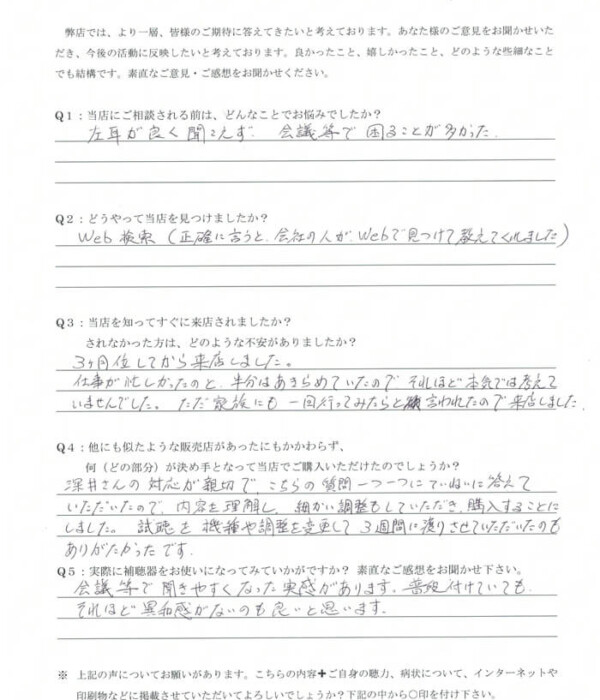 弊店では、より一層、皆様のご期待に答えてきたいと考えております。あなた様のご意見をお聞かせいた
だき、今後の活動に反映したいと考えております。良かったこと、嬉しかったこと、どのような些細なこと
でも結構です。素直なご意見・ご感想をお聞かせください。
Q1：当店にご相談される前は、どんなことでお悩みでしたか？
左耳が良く聞こえず、会議等で困ることが多かった。
Q2：どうやって当店を見つけましたか？
Web検索（正確に言うと、会社の人が、Webで見つけて教えてくれました）
Q3：当店を知ってすぐに来店されましたか？
されなかった方は、どのような不安がありましたか？
3ヶ月位してから来店しました。
仕事が忙しかったのと、半分はあきらめていたので、それほど本気では考えて
いませんでした。ただ家族にも一回行ってみたらと言われたので来店しました
Q4：他にも似たような販売店があったにもかかわらず、
何（どの部分）が決め手となって当店でご購入いただけたのでしょうか？
深井さんの対応が親切で、こちらの質問一つ一つにていねいに答えて
いただいたので、内容を理解し、細かい調整もしていただき、購入することに
しました。試聴を機種や調整を変更して3週間に渡りさせていただいたのも
ありがたかったです。
Q5：実際に補聴器をお使いになってみていかがですか？ 素直なご感想をお聞かせ下さい。
会議等で聞きやすくなった実感があります。普段付けていても、
それほど異和感がないのも良いと思います。
※ 上記の声についてお願いがあります。こちらの内容＋ご自身の聴力、病状について、インターネットや
印刷物などに掲載させていただいてよろしいでしょうか？下記の中から○印を付け下さい。